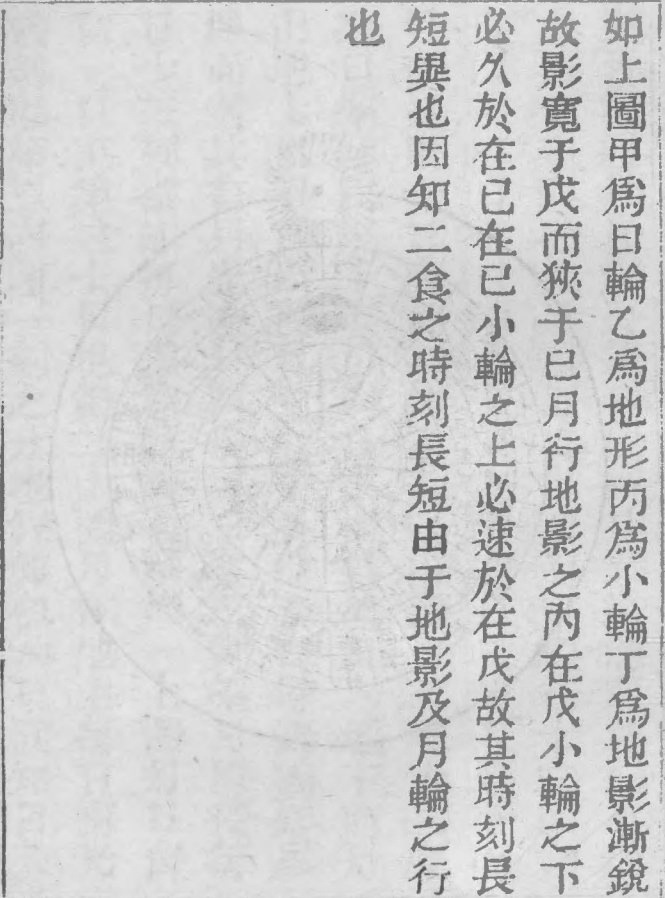 如上圖甲爲日輪乙爲地形丙爲小輪丁爲地影漸銳
故影寬于戊而狹于已月行地影之內在戊小輪之下
必久於在已在已小輪之上必速於在戊故其時刻長
短異也因知二食之時刻長短由于地影及月輪之行
也